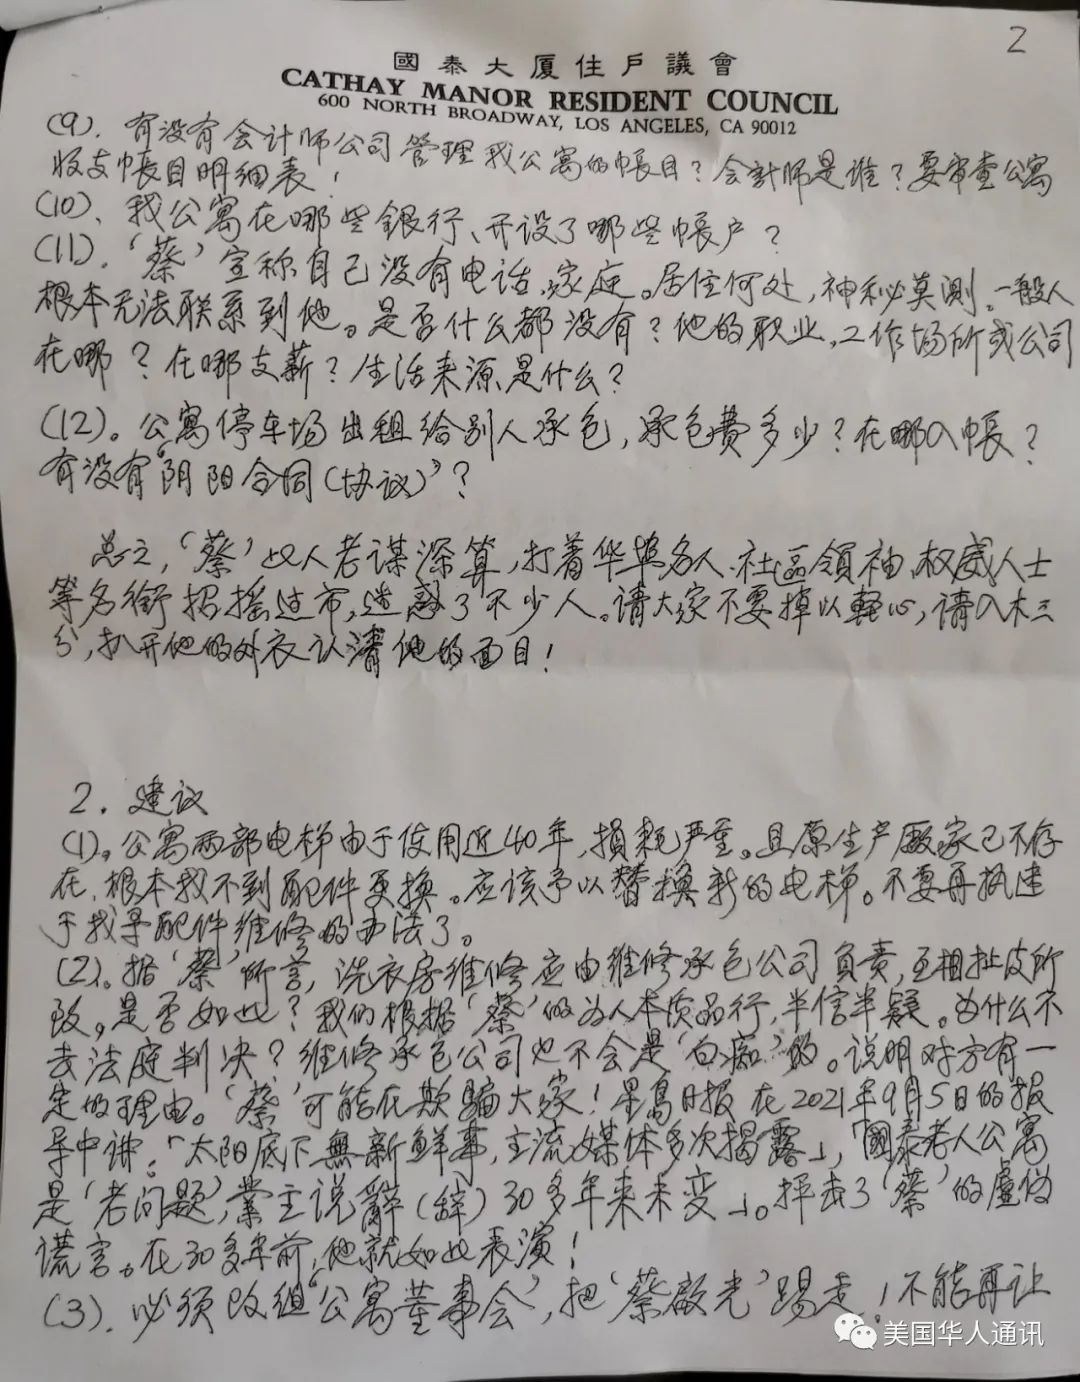 2
國泰大厦住戶議會
CATHAY MANOR RESIDENT COUNCIL
600 NORTH BROADWAY, LOS ANGELES, CA 90012
(9). 有没有会计师公司管理我公寓的帳目？会計师是谁？要审查公寓
收支帳目明细表！
(10)、我公寓在哪些銀行、开设了哪些帳户？
(11).‘蔡’宣称自己没有电话、家庭。居住何处，神秘莫测。一般人
根本无法联系到他。是否什么都没有？他的职业，工作场所或公司
在哪？在哪支薪？生活来源是什么？
(12)。公寓停车场出租给别人承包，承包费多少？在哪入帳？
有没有“阴阳合同(协议)”？
总之，‘蔡’此人老谋深算，打着华埠名人、社區領袖、权威人士
等名銜招摇过市，迷惑了不少人。请大家不要掉以輕心，请入木三
分，扒开他的外衣认清他的面目！
2. 建议
(1)。公寓两部电梯由于使用近40年，損耗严重。且原生产厰家已不存
在，根本找不到配件更换。应该予以替换新的电梯。不要再执迷
于找寻配件维修的办法了。
(2)。据‘蔡’所言，洗衣房维修应由维修承包公司负责，互相扯皮所
致。是否如此？我们根据‘蔡’的为人本质品行，半信半疑。为什么不
去法庭判决？维修承包公司也不会是‘白痴’的。说明对方有一
定的理由。‘蔡’可能在欺騙大家！星島日报在2021年9月5日的报
导中讲：「太阳底下無新鮮事，主流媒体多次揭露」，「國泰老人公寓
是‘老问题’，業主说辭(辞)30多年来未变」。抨击了‘蔡’的虛伪
谎言。在30多年前，他就如此表演！
(3). 必须改组“公寓董事会”，把‘蔡啟光’踢走！不能再让
美国华人通讯